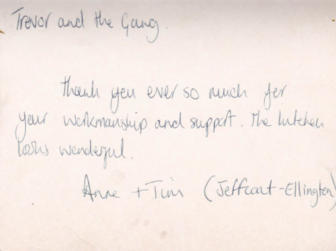 Trevor and the Gang.
Thank you ever so much for
your workmanship and support. The kitchen
looks wonderful.
Anne + Tim (Jeffcoat-Ellington)